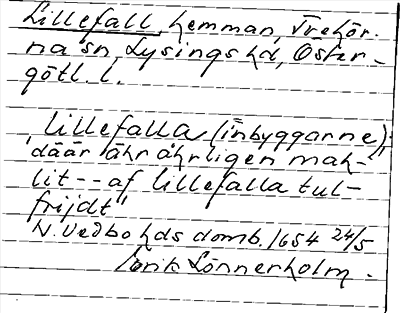 Lillefall, hemman, Trehör-
na sn, Lysings hd, Öster-
götl. l.
"lillefalla (inbyggarne)
däär åhr åhrligen mah-
lit -- af lillefalla tul-
frijdt"
N. Vedbo hds domb. 1654 24/5
Erik Lönnerholm.